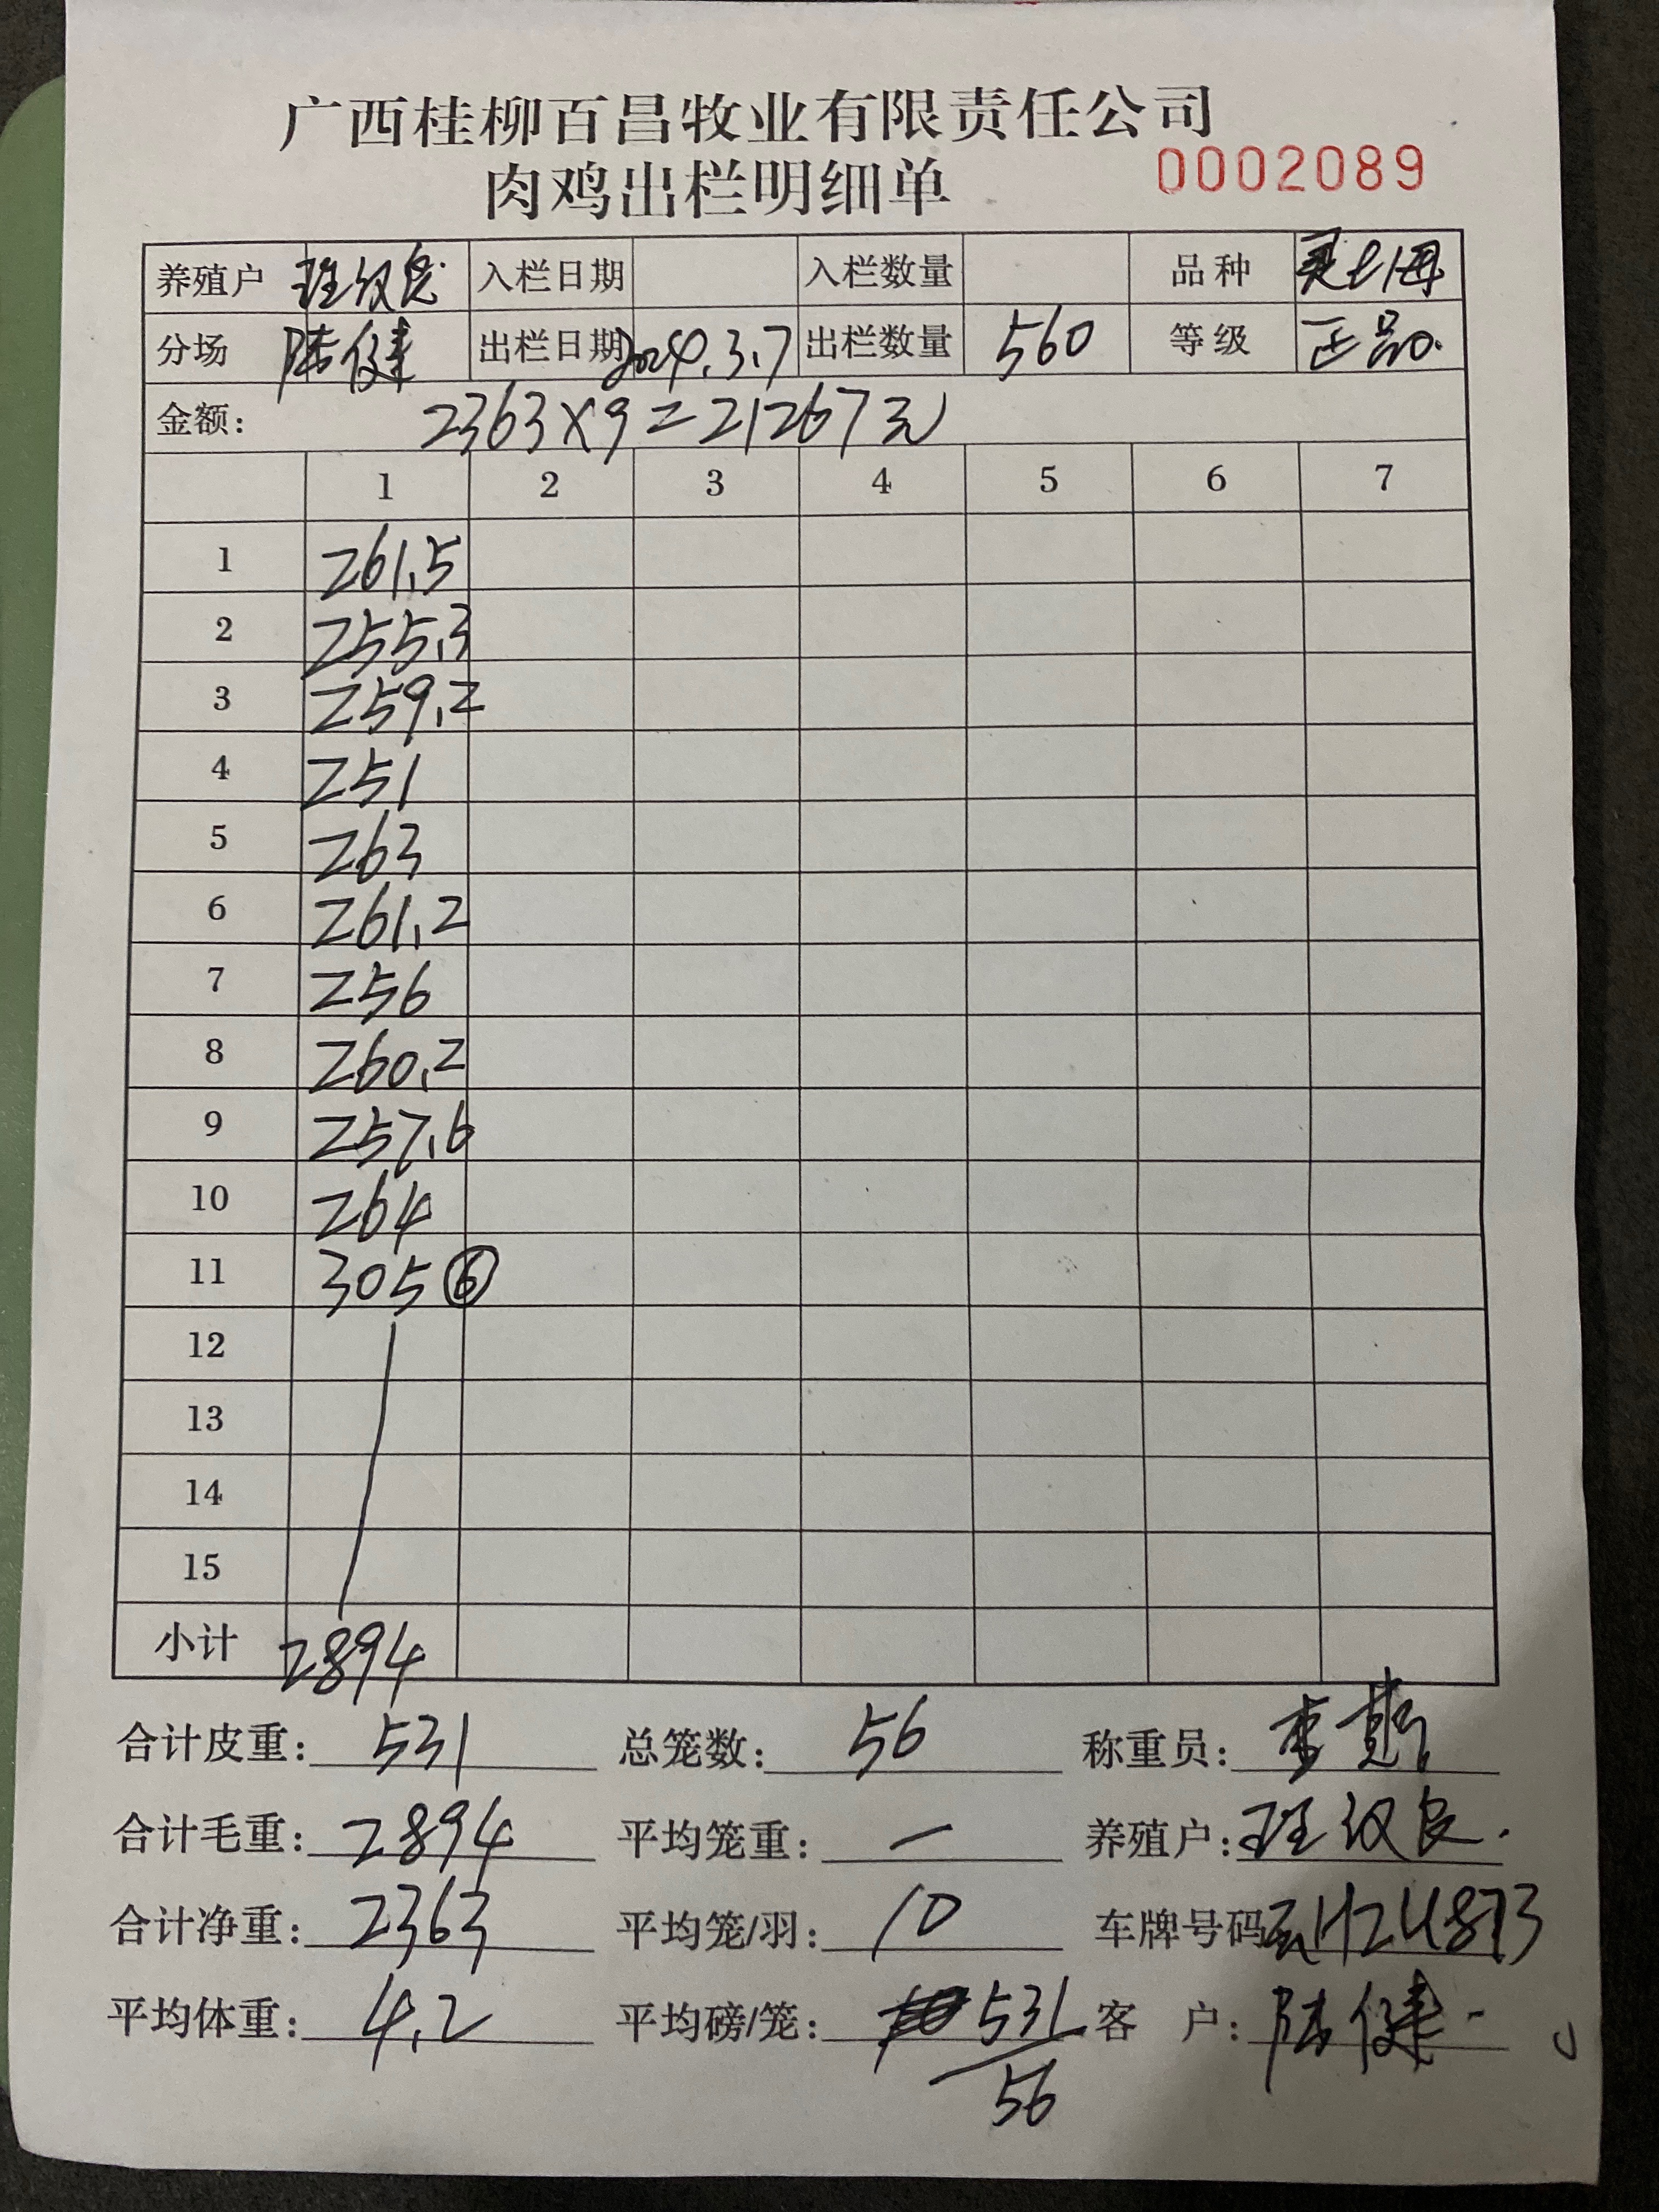 广西桂柳百昌牧业有限责任公司
肉鸡出栏明细单 0002089
养殖户 入栏日期 入栏数量 品种
分场 陆健 出栏日期 2024.3.7 出栏数量 560 等级 正品
金额: 2363×9=21267元
1 2 3 4 5 6 7
1 261.5
2 255.3
3 259.2
4 251
5 263
6 261.2
7 256
8 260.2
9 257.6
10 264
11 305 ⑥
12
13
14
15
小计 2894
合计皮重: 531 总笼数: 56 称重员: 李
合计毛重: 2894 平均笼重: — 养殖户:
合计净重: 2363 平均笼/羽: 10 车牌号码
平均体重: 4.2 平均磅/笼: 531/56 客 户: 陆健